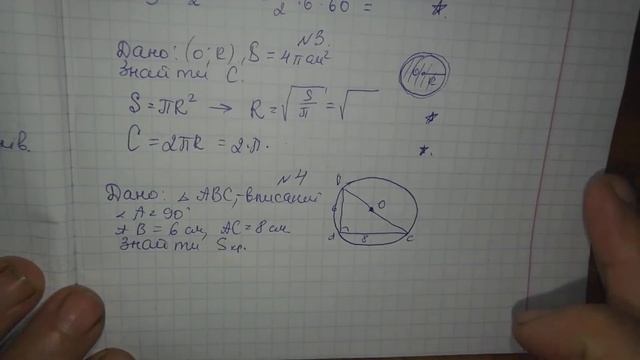 2·6·60 =
№3.
Дано: (О; R), S = 4π см²
Знайти С.
R
S = πR² → R = √S/π = √
С = 2πR = 2·π.
ив.
№4
Дано: △ ABC, -вписаний
∠ A = 90°
AB = 6 см, AC = 8 см
Знайти Sкр.
B
O
6
A
8
C